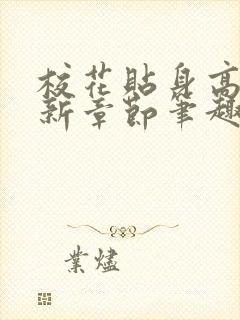 校花貼身高
新章節筆趣
業燼